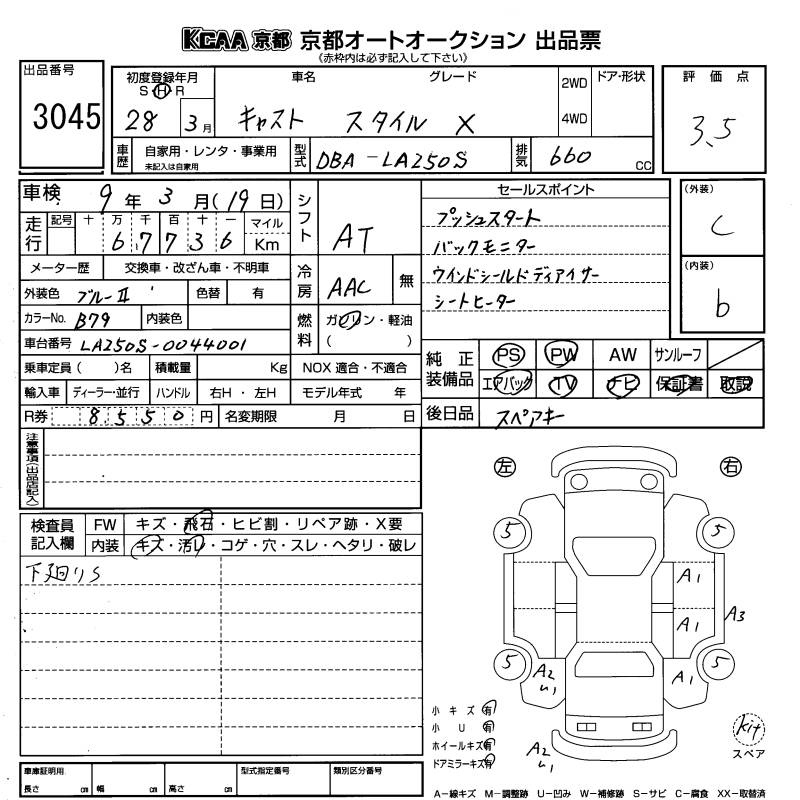 KCAA 京都 京都オートオークション 出品票
(赤枠内は必ず記入して下さい)
出品番号
3045
初度登録年月
S H R
28 3月
車名
グレード
キャスト スタイル X
2WD
4WD
ドア・形状
車歴
自家用・レンタ・事業用
未記入は自家用
型式
DBA-LA250S
排気
660 CC
評価点
3.5
車検 9年3月(19日)
走行
記号 十 万 千 百 十 一
6 7 7 3 6
マイル
Km
メーター歴 交換車・改ざん車・不明車
外装色 ブルーII 色替 有
カラーNo. B79 内装色
車台番号 LA250S-0044001
乗車定員( )名 積載量 Kg
輸入車 ディーラー・並行 ハンドル 右H・左H
R券 8,550円 名変期限 月 日
シフト AT
冷房 AAC 無
燃料 ガソリン・軽油
( )
NOX 適合・不適合
モデル年式 年
セールスポイント
プッシュスタート
バックモニター
ウインドシールドディアイサー
シートヒーター
(外装)
C
(内装)
b
純正装備品
PS PW AW サンルーフ
エアバック TV ナビ 保証書 取説
後日品 スペアキー
注意事項(出品店記入)
検査員記入欄
FW キズ・飛石・ヒビ割・リペア跡・X要
内装 キズ・汚レ・コゲ・穴・スレ・ヘタリ・破レ
下廻りS
左 右
5 5
A1
A1 A3
5 A2 U1 A1 5
小キズ 有
小U 有
ホイールキズ 有
ドアミラーキズ 有
A2
U1
kit
スペア
車庫証明用
長さ cm 幅 cm 高さ cm
型式指定番号
類別区分番号
A-線キズ M-調整跡 U-凹み W-補修跡 S-サビ C-腐食 XX-取替済